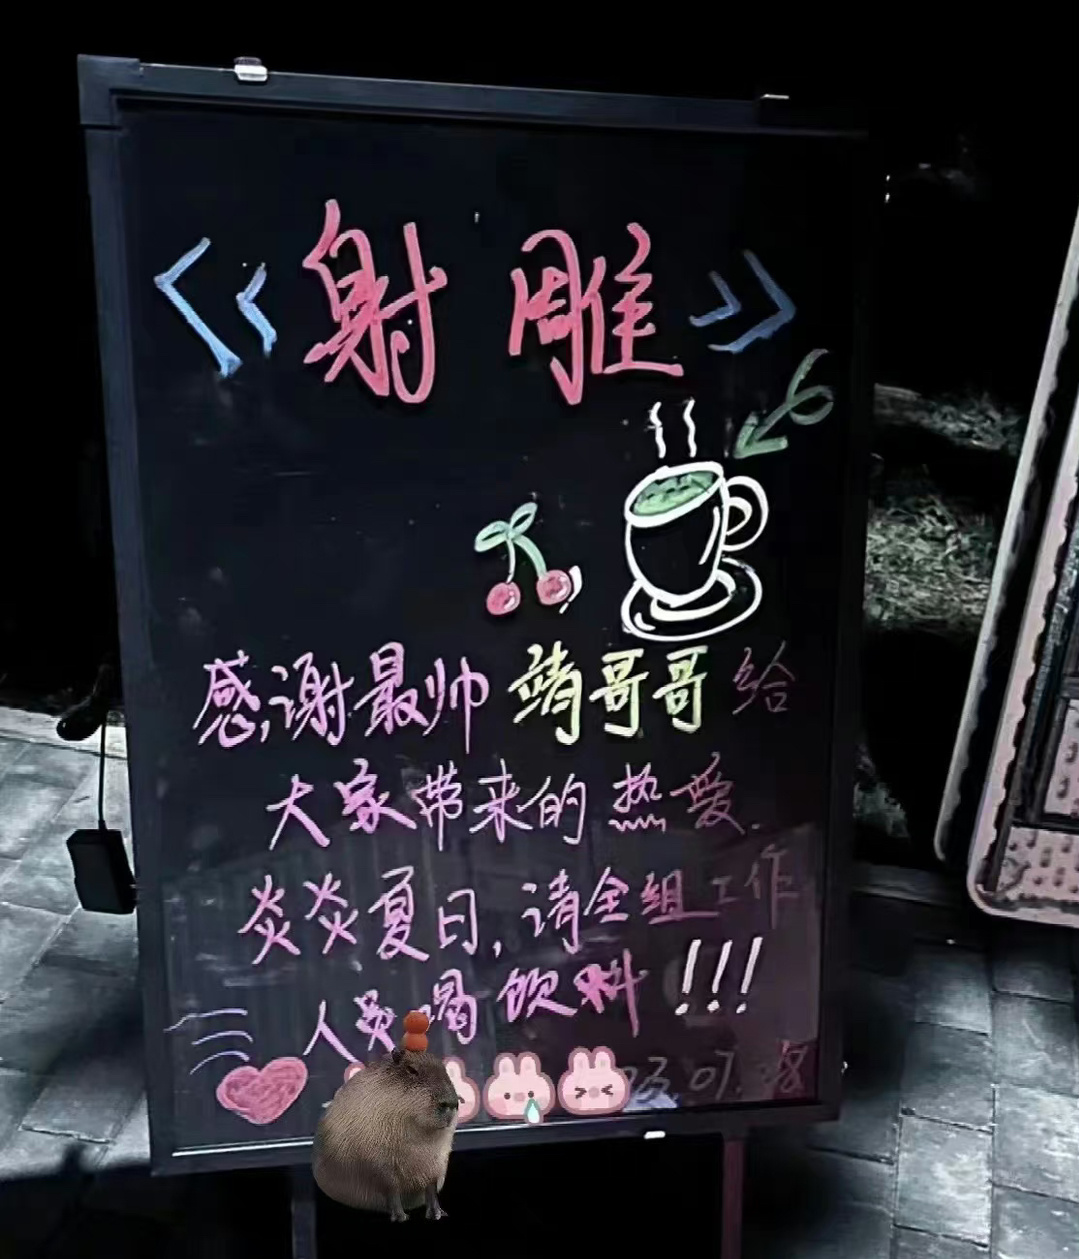 《射雕》
感谢最帅靖哥哥给
大家带来的热爱.
炎炎夏日,请全组工作
人员喝饮料!!!
07.28